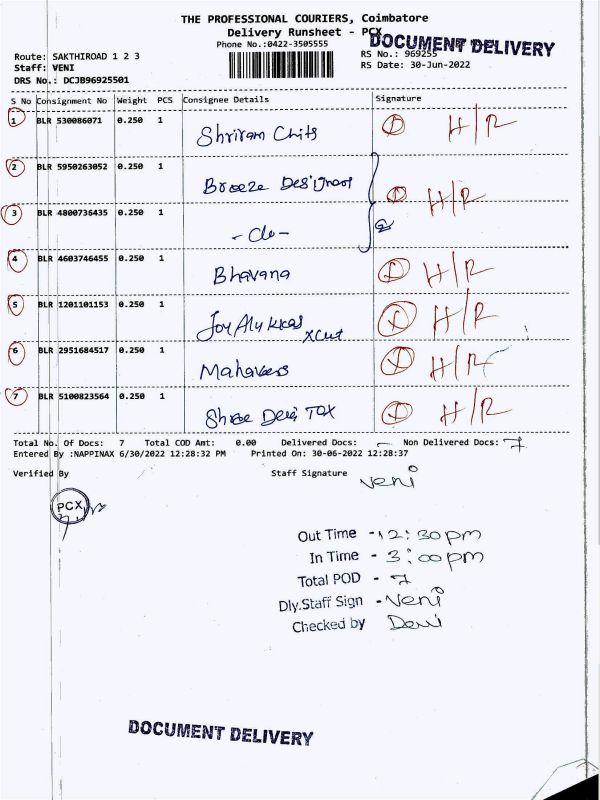 THE PROFESSIONAL COURIERS, Coimbatore
Delivery Runsheet - PCX
DOCUMENT DELIVERY
Phone No.:0422-3505555
Route: SAKTHIROAD 1 2 3
RS No.: 969255
Staff: VENI
RS Date: 30-Jun-2022
DRS No.: DCJB96925501
S No Consignment No Weight PCS Consignee Details Signature
1 BLR 530086071 0.250 1 Shriram Chits H/R
2 BLR 5950263052 0.250 1 Breeze Designers H/R
3 BLR 4800736435 0.250 1 - do -
4 BLR 4603746455 0.250 1 Bhavana H/R
5 BLR 1201101153 0.250 1 Joy Alukkas H/R
6 BLR 2951684517 0.250 1 H/R
7 BLR 5100823564 0.250 1 Shree Devi Tex H/R
Total No. Of Docs: 7 Total COD Amt: 0.00 Delivered Docs: - Non Delivered Docs: 7
Entered By :NAPPINAX 6/30/2022 12:28:32 PM Printed On: 30-06-2022 12:28:37
Verified By Staff Signature Veni
PCX
Out Time - 12:30pm
In Time - 3:00pm
Total POD - 7
Dly.Staff Sign - Veni
Checked by Devi
DOCUMENT DELIVERY